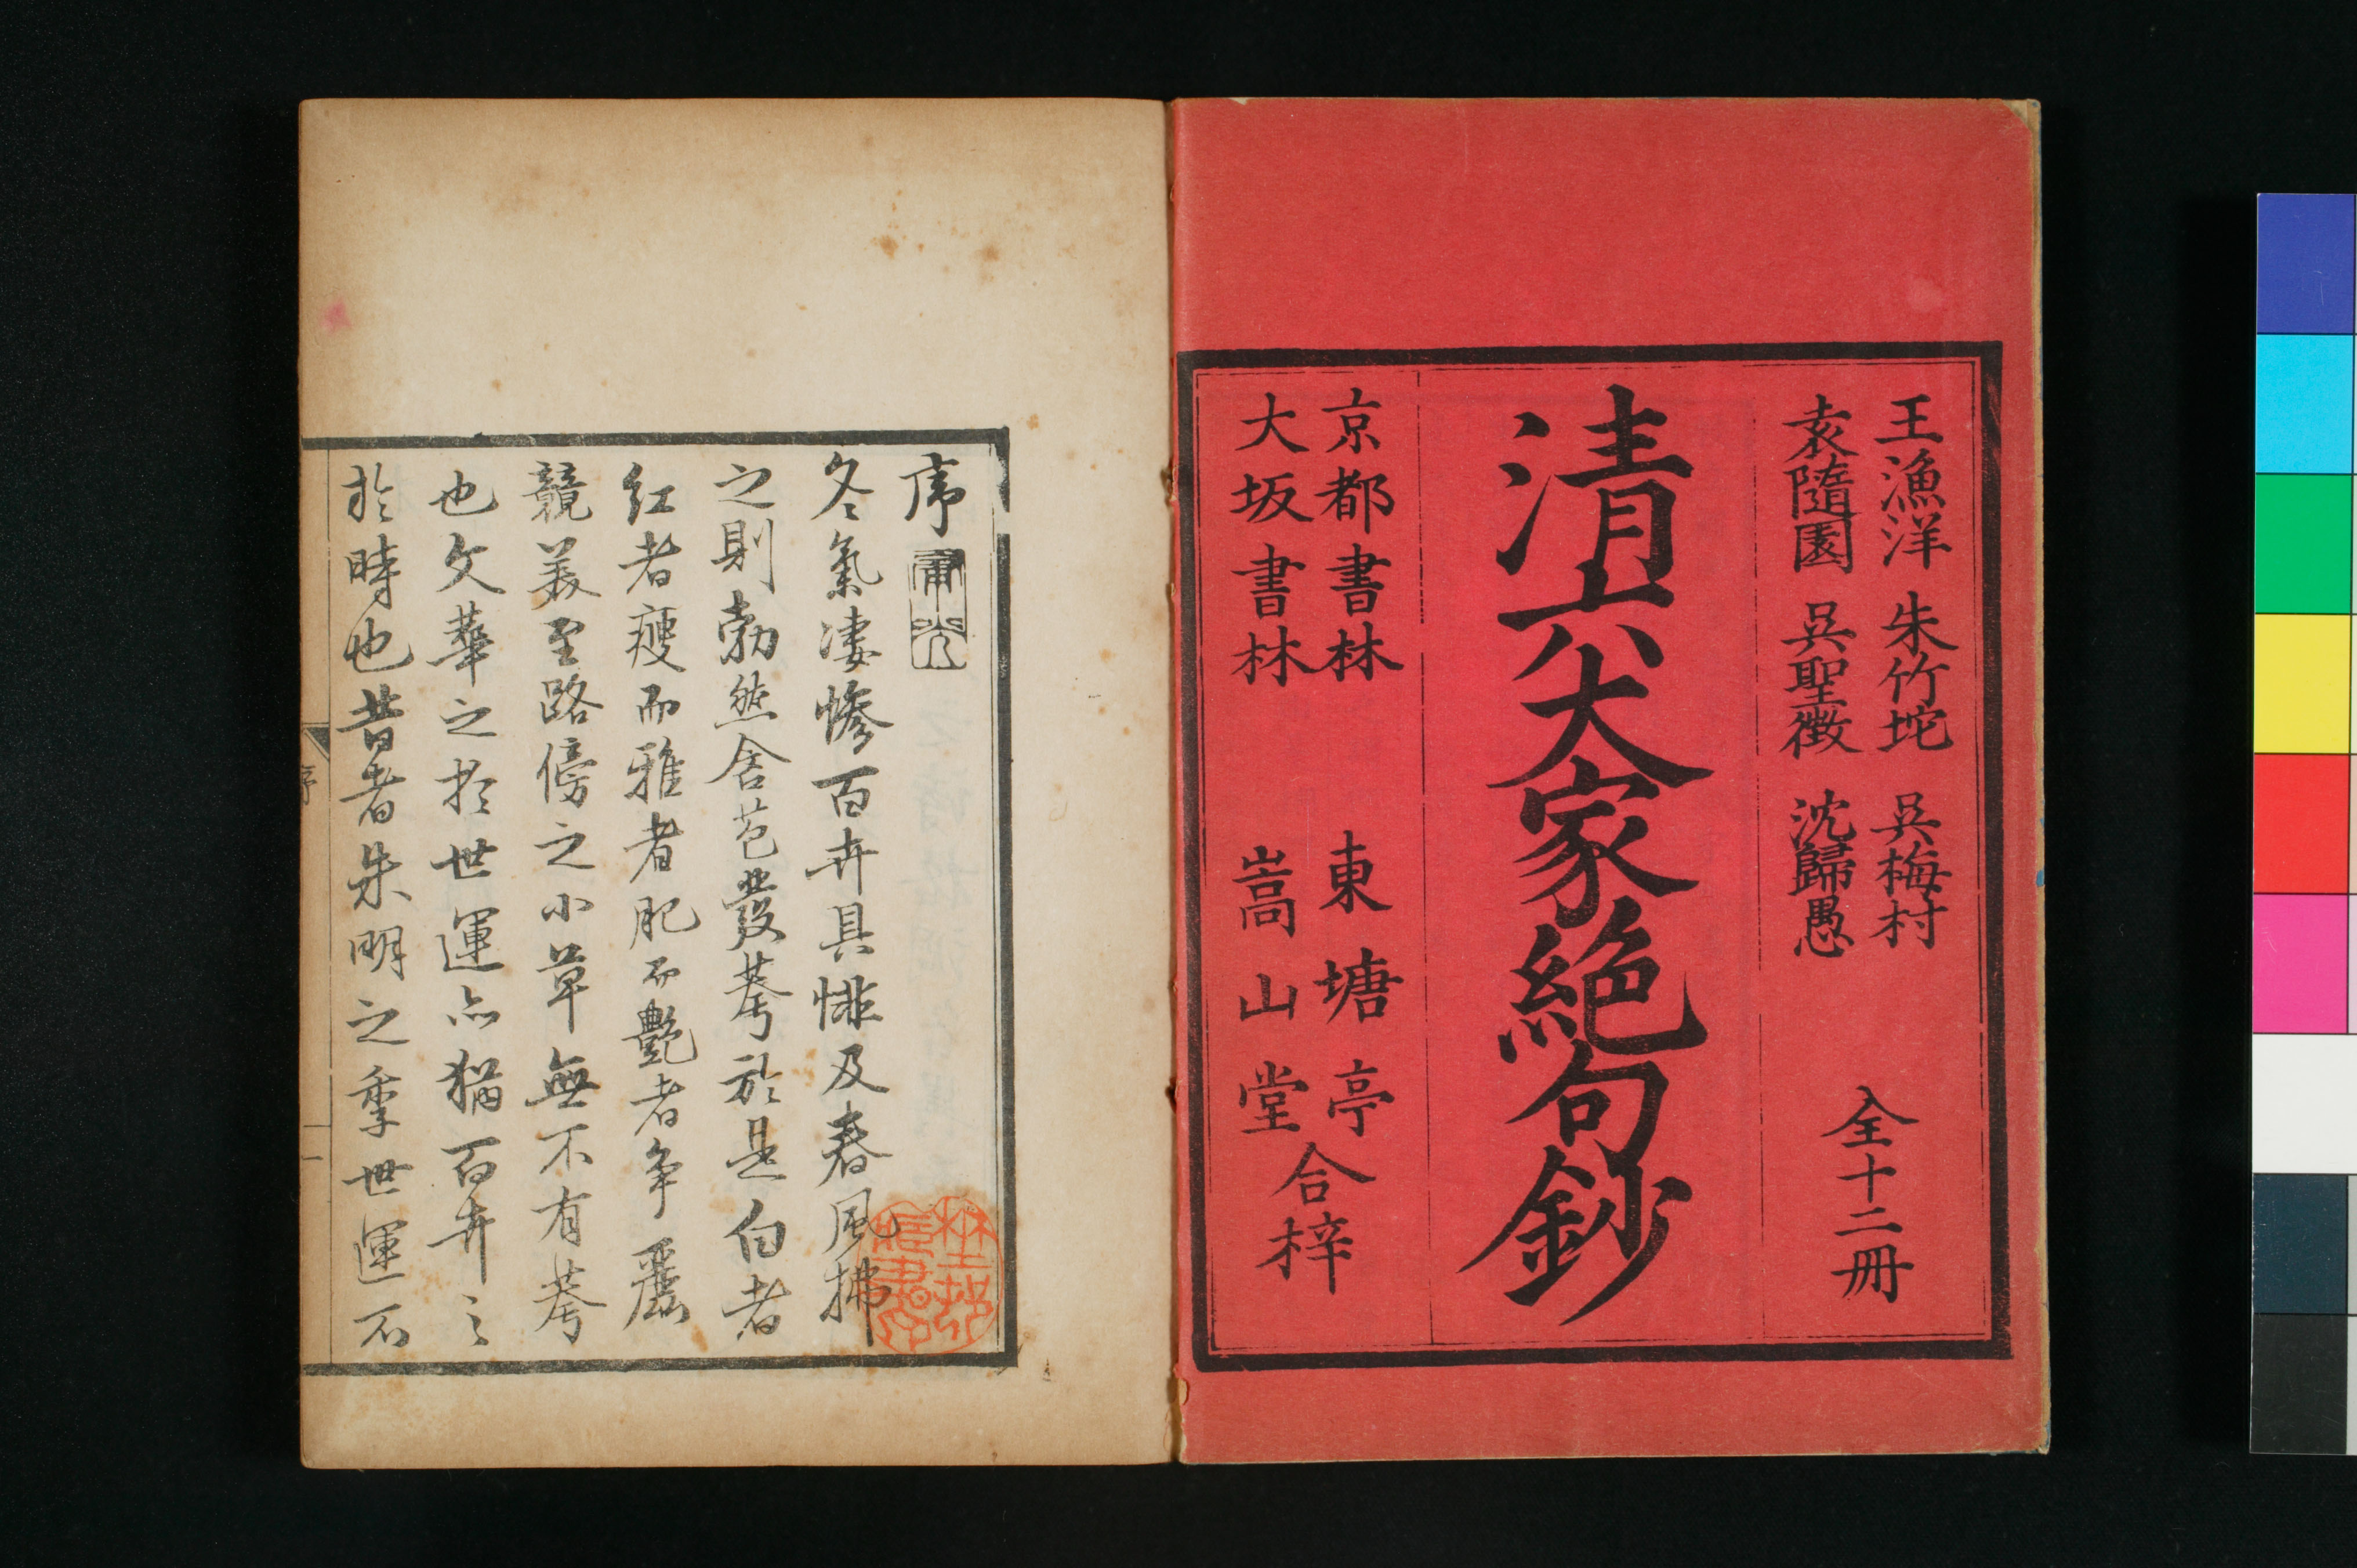 王漁洋 朱竹垞 吳梅村
袁隨園 吳聖徵 沈歸愚
全十二冊
清六大家絕句鈔
京都書林 東塘亭
大坂書林 嵩山堂
合梓
序
冬氣凄慘百卉具悱及春風拂
之則勃然含苞發萼於是白者
紅者瘦而雅者肥而艷者爭麗
競美至路傍之小草無不有萼
也文華之於世運亦猶百卉之
於時也昔者朱明之季世運不
序
一